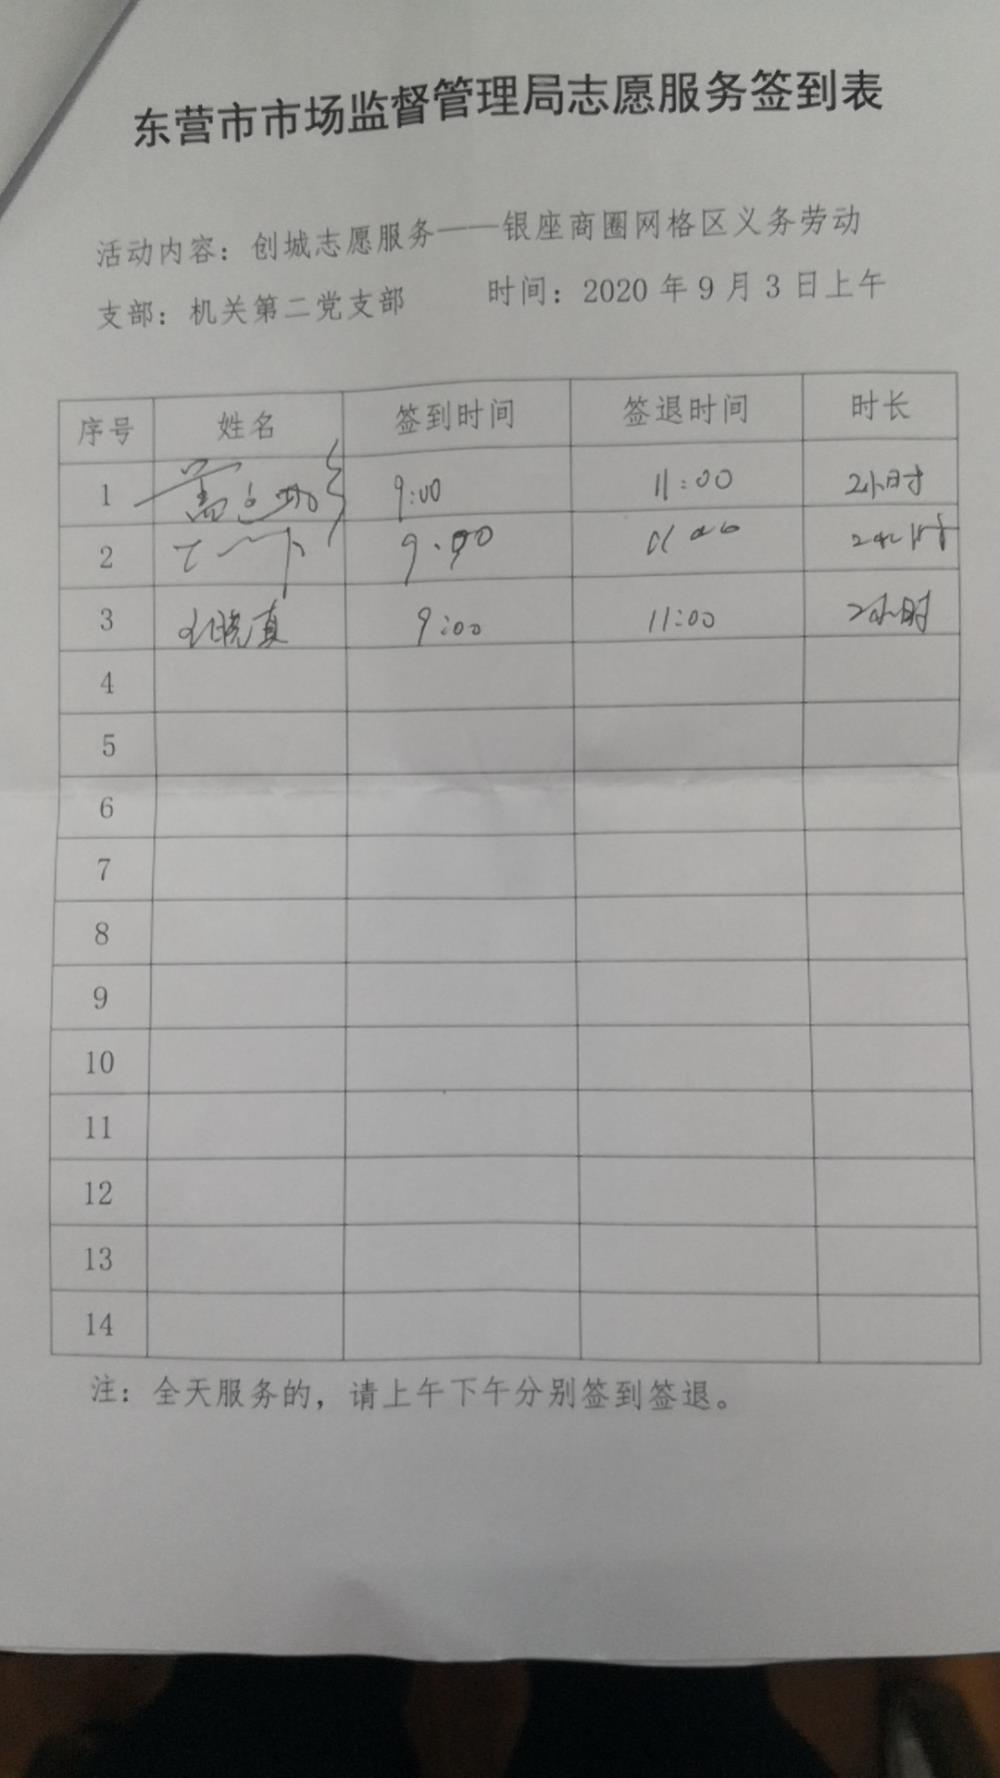 东营市市场监督管理局志愿服务签到表
活动内容：创城志愿服务——银座商圈网格区义务劳动
支部：机关第二党支部 时间：2020年9月3日上午
序号 姓名 签到时间 签退时间 时长
1 9:00 11:00 2小时
2 9:00 11:00 2小时
3 张晓真 9:00 11:00 2小时
4
5
6
7
8
9
10
11
12
13
14
注：全天服务的，请上午下午分别签到签退。